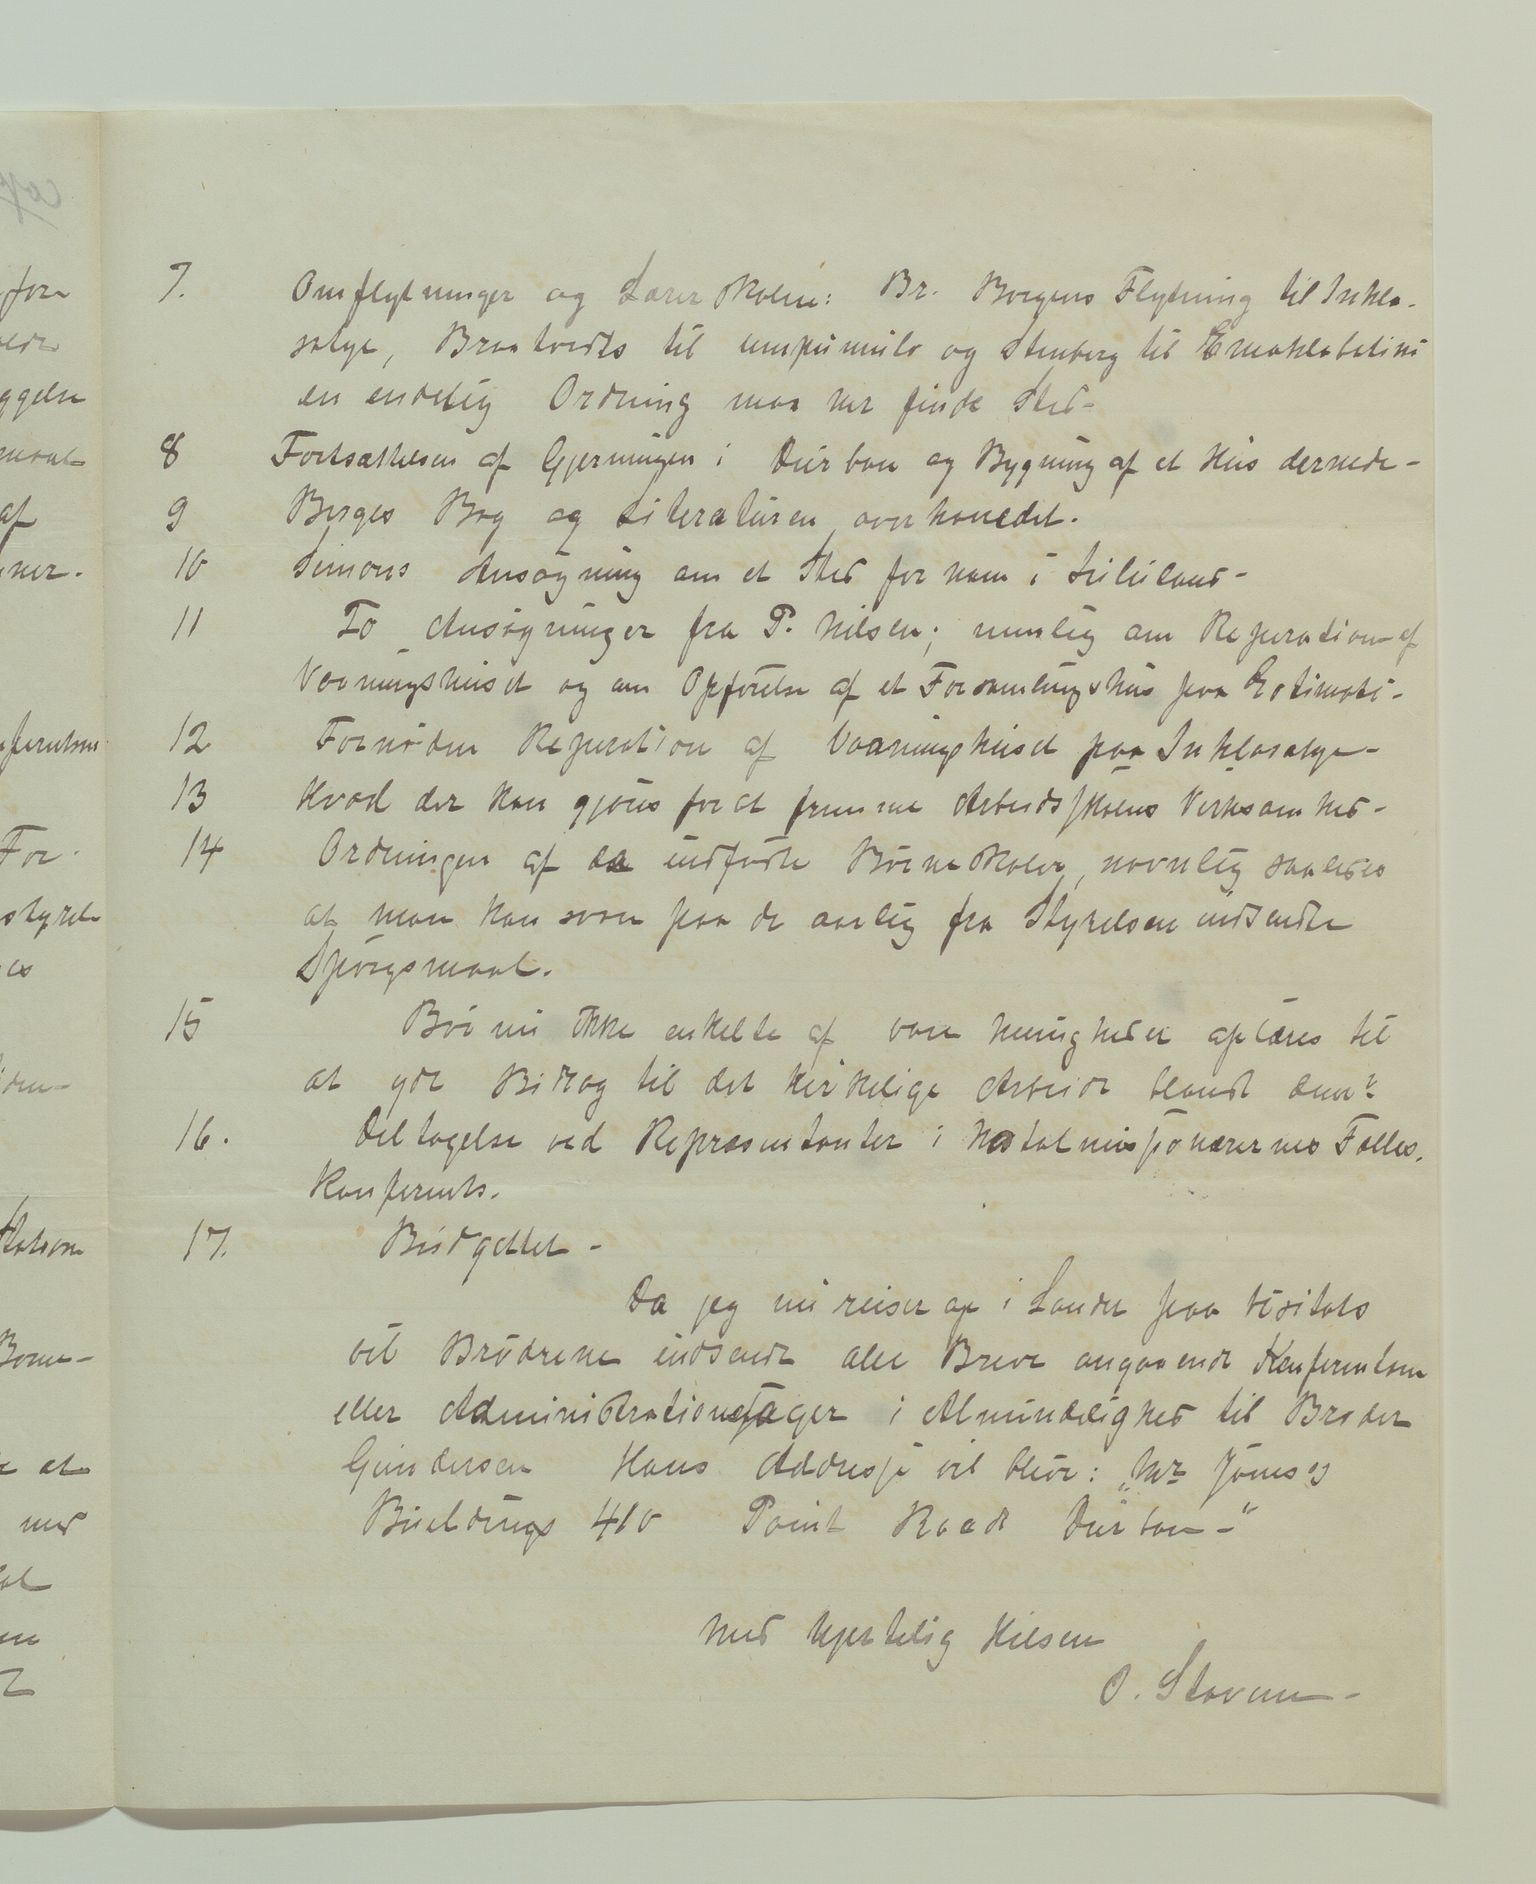 7. Omflytninger og Lærerskolen: Br. Borgens Flytning til Inhla-
zatye, Braatvedts til Umpumulo og Stenberg til Emahlabatini
en endelig Ordning maa her finde Sted-
8 Fortsættelsen af Gjerningen i Durban og Bygning af et Hus dernede-
9 Borges Bog og Literaturen overhovedet.
10 Simons Ansøgning om et Sted for ham i Zululand-
11 To Ansøgninger fra P. Nilsen; nemlig om Reparation af
Vaaningshuset og om Opførelse af et Forsamlingshus paa Eotimati-
12 Fornøden Reparation af Vaaningshuset paa Inhlazatye-
13 Hvad der kan gjøres for at fremme Arbeidsskolens Virksomhed-
14 Ordningen af de indfødte Børneskoler, navnlig saaledes
at man kan svare paa de aarlig fra Styrelsen indsendte
Spørgsmaal.
15 Bør nu ikke enkelte af vore Menigheder oplæres til
at yde Bidrag til det kirkelige Arbeide blandt dem?
16. Deltagelse ved Repræsentanter i Natalmissionærernes Fælles-
konferents.
17. Budgettet-
Da jeg nu reiser op i Landet paa Visitats
vil Brødrene indsende alle Breve angaaende Konferentsen
eller Administrationssager i Almindelighed til Broder
Gundersen Hans Addresse vil blive: „Mr Jameses
Buildings 410 Point Road Durban-“
Med hjertelig Hilsen
O. Stavem-
for
af
For
styrelse
at
med